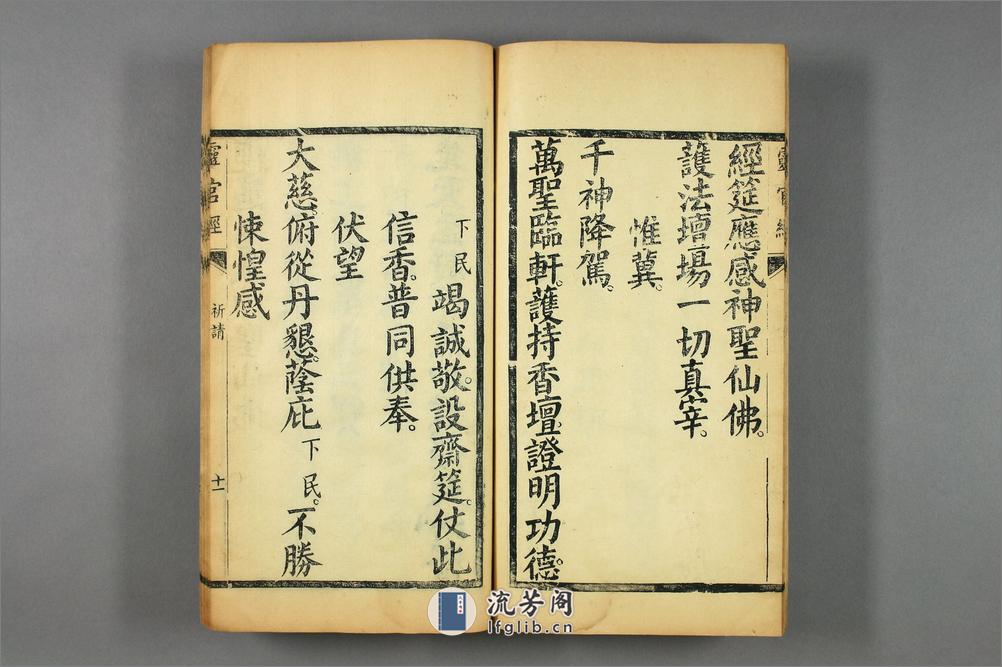 經筵應感神聖仙佛。
護法壇塲一切真宰。
惟冀。
千神降駕。
萬聖臨軒。護持香壇。證明功德。
下民竭誠敬。設齋筵。仗此
信香。普同供奉。
伏望
大慈。俯從丹懇。蔭庇下民。不勝
悚惶感
靈官經
祈請
十一
靈官經
流芳阁
lfglib.cn